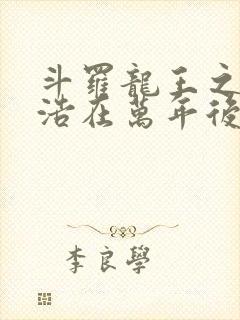 斗羅龍王之
浩在萬年後
李良學